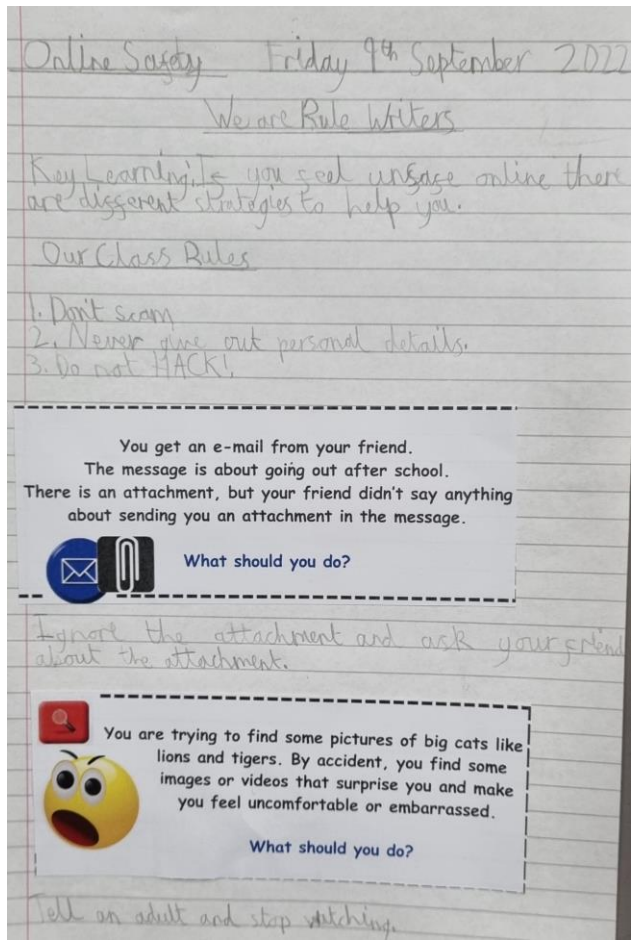 Online Safety Friday 9th September 2022
We are Rule Writers
Key Learning: If you feel unsafe online there
are different strategies to help you.
Our Class Rules
1. Don't scam
2. Never give out personal details.
3. Do not HACK!.
You get an e-mail from your friend.
The message is about going out after school.
There is an attachment, but your friend didn't say anything
about sending you an attachment in the message.
What should you do?
Ignore the attachment and ask your friend
about the attachment.
You are trying to find some pictures of big cats like
lions and tigers. By accident, you find some
images or videos that surprise you and make
you feel uncomfortable or embarrassed.
What should you do?
Tell an adult and stop watching.